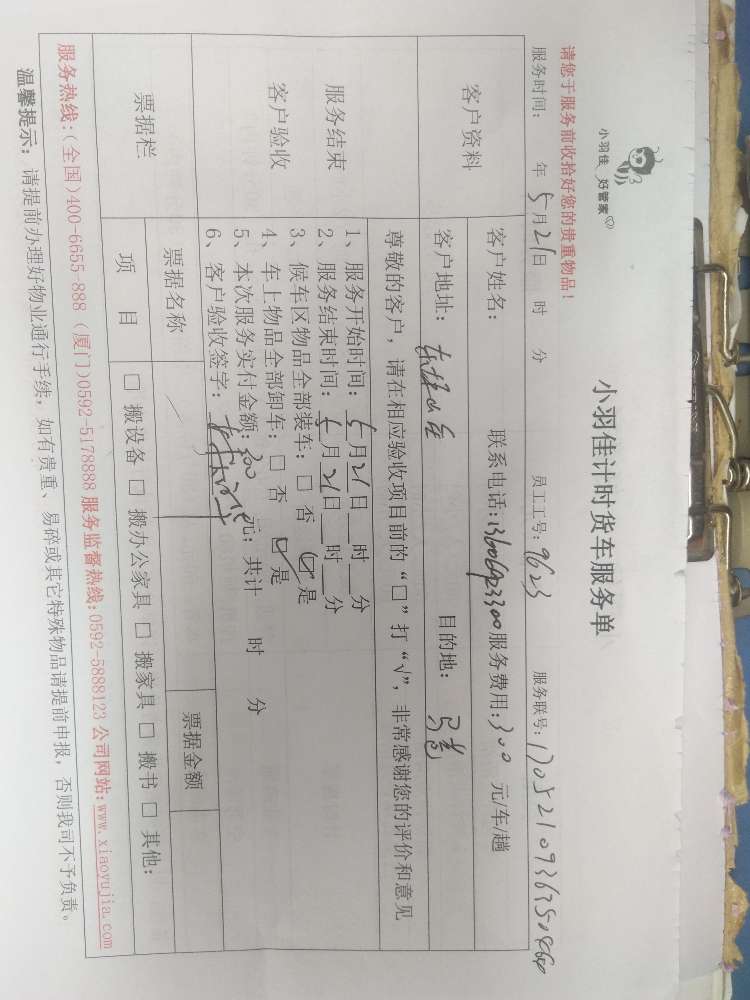 小羽佳 好管家
小羽佳计时货车服务单
请您于服务前收拾好您的贵重物品！
服务时间： 年 5月21日 时 分 员工工号：9623 服务联号：
客户资料
客户姓名： 联系电话： 服务费用：300 元/车/趟
客户地址： 目的地：
服务结束
客户验收
尊敬的客户，请在相应验收项目前的“□”打“√”，非常感谢您的评价和意见
1、服务开始时间：5月21日 时 分
2、服务结束时间：5月21日 时 分
3、候车区物品全部装车：□ 否 ☑ 是
4、车上物品全部卸车：□ 否 ☑ 是
5、本次服务实付金额：300 元；共计 时 分
6、客户验收签字：
票据栏
票据名称 票据金额
项 目 □ 搬设备 □ 搬办公家具 □ 搬家具 □ 搬书 □ 其他：
服务热线：（全国）400-6655-888 （厦门）0592-5178888 服务监督热线：0592-5888123 公司网站：www.xiaoyujia.com
温馨提示：请提前办理好物业通行手续，如有贵重、易碎或其它特殊物品请提前申报，否则我司不予负责。